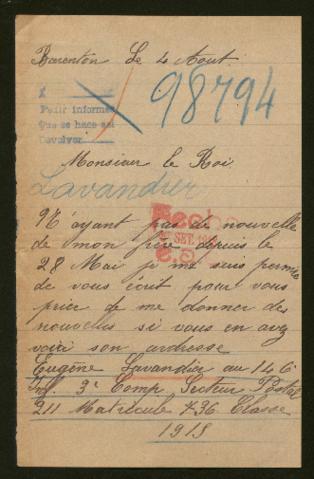 Barenton Le 4 Aout.
98794
Pedir informes
Que se hace así
Devolver
Monsieur le Roi
Lavandier
N'ayant pas de nouvelle
de mon frère depuis le
28 Mai je me suis permie
de vous écrit pour vous
prier de me donner des
nouvelles si vous en avez
voici son ardresse
Eugène Lavandier au 146
Inf. 3e Comp Secteur Postal
211 Matricule 736 Classe
1915